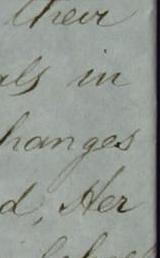 their
als in
hanges
d, Her